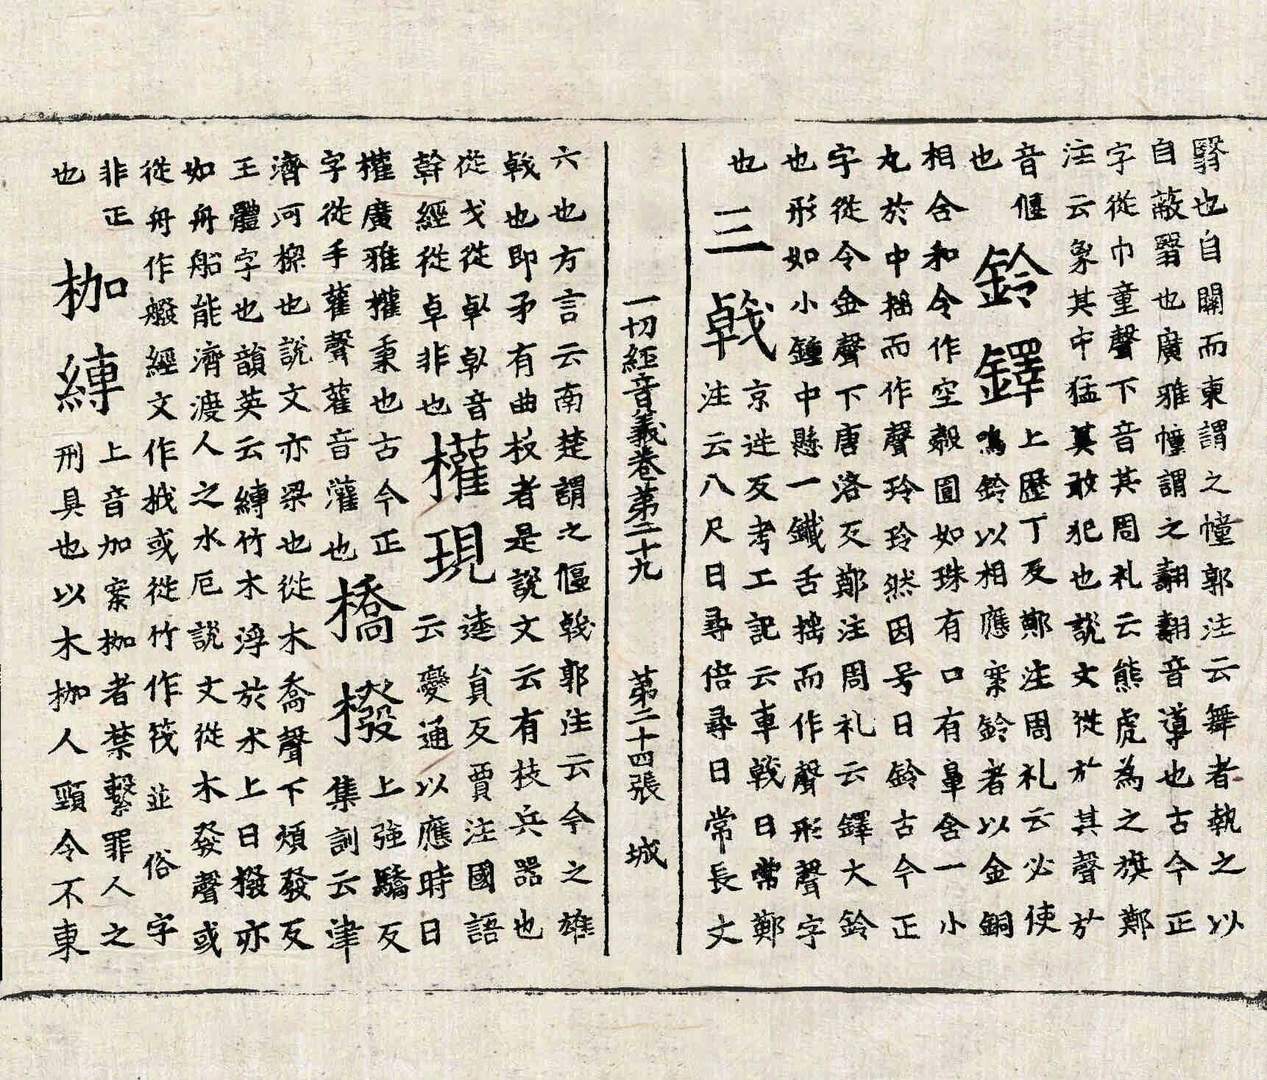 翳也自關而東謂之幢郭注云舞者執之以
自蔽翳也廣雅幢謂之翿翿音導也古今正
字從巾童聲下音其周礼云熊虎為之旗鄭
注云象其中猛莫敢犯也說文從㫃其聲㫃
音偃
也
鈴鐸
上歷丁反鄭注周礼云必使
鳴鈴以相應案鈴者以金銅
相合和令作空㲉圎如珠有口有鼻含一小
丸於中揺而作聲玲玲然因号曰鈴古今正
字從令金聲下唐洛反鄭注周礼云鐸大鈴
也形如小鍾中懸一鐵舌揺而作聲形聲字
也
三戟
京逆反考工記云車戟曰常鄭
注云八尺曰尋倍尋曰常長丈
一切經音義卷第二十九 第二十四張 城
六也方言云南楚謂之偃戟郭注云今之雄
戟也即矛有曲枝者是說文云有枝兵器也
從戈從倝倝音
幹經從卓非也
權現
逵負反賈注國語
云變通以應時曰
權廣雅權秉也古今正
字從手雚聲雚音灌也
橋撥
上強驕反
集訓云津
濟河樑也說文亦梁也從木喬聲下煩發反
王體字也韻英云縛竹木浮於水上曰撥亦
如舟船能濟渡人之水厄說文從木發聲或
從舟作橃經文作栰或從竹作筏並俗字
非正
也
枷縛
上音加案枷者禁繫罪人之
刑具也以木枷人頸令不東